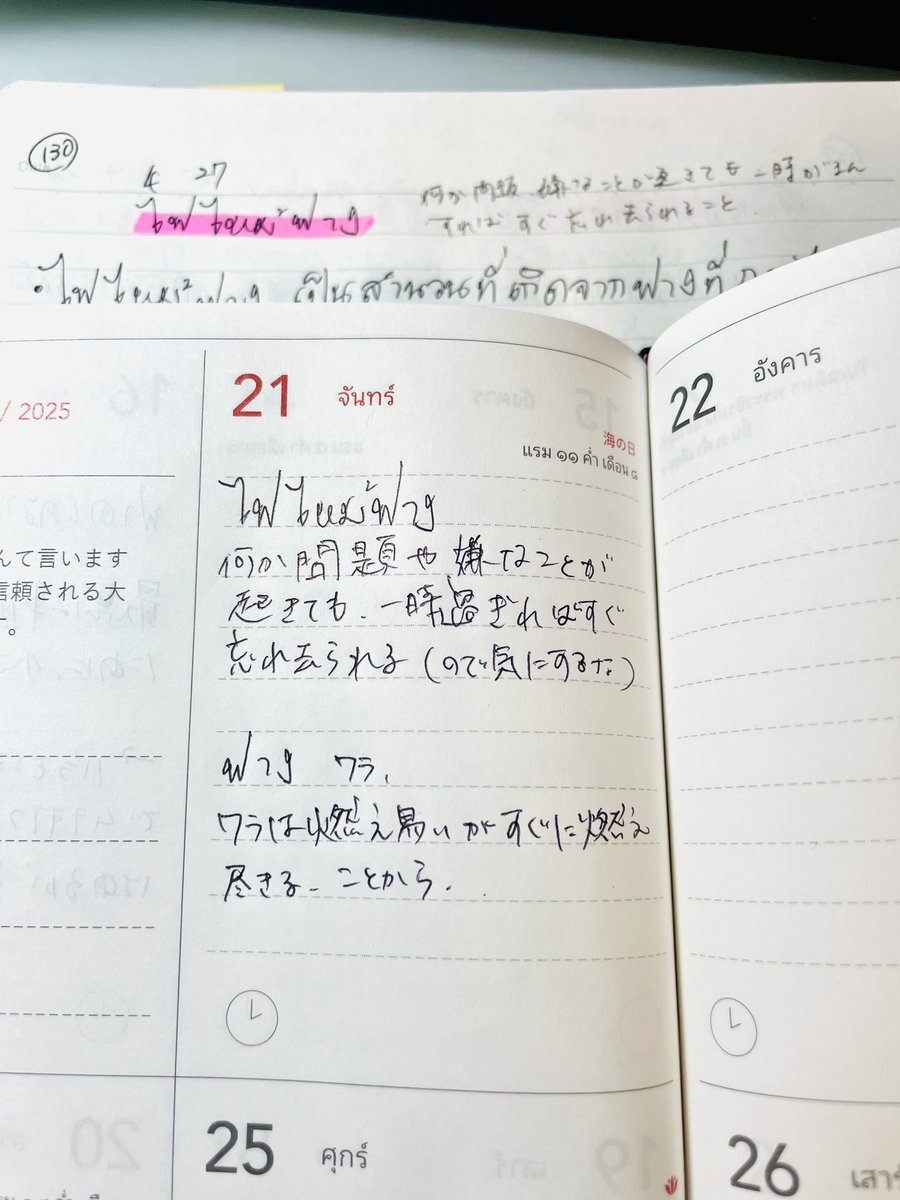 130
4 27
ไฟไหม้ฟาง
何か問題、嫌なことが起きても一時が
すればすぐ忘れ去られること
• ไฟไหม้ฟาง เป็นสำนวนที่เกิดจากฟางที่
/ 2025
21 จันทร์
海の日
แรม ๑๑ ค่ำ เดือน ๘
ไฟไหม้ฟาง
何か問題や嫌なことが
起きても、一時過ぎればすぐ
忘れ去られる(ので気にするな)
ฟาง ワラ、
ワラは燃え易いがすぐに燃え
尽きる、ことから、
んて言います
信頼される大
す。
22 อังคาร
25 ศุกร์
26 เสาร์